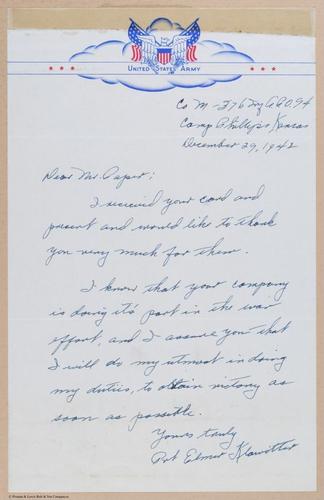 United States Army
Co M - 376 Inf A.P.O. 94
Camp Phillips Kansas
December 29, 1942
Dear Mr. Paper:
I received your card and
present and would like to thank
you very much for them.
I know that your company
is doing it's part in the war
effort, and I assure you that
I will do my utmost in doing
my duties, to obtain victory as
soon as possible.
Yours truly
Pvt Elmer Klawitter